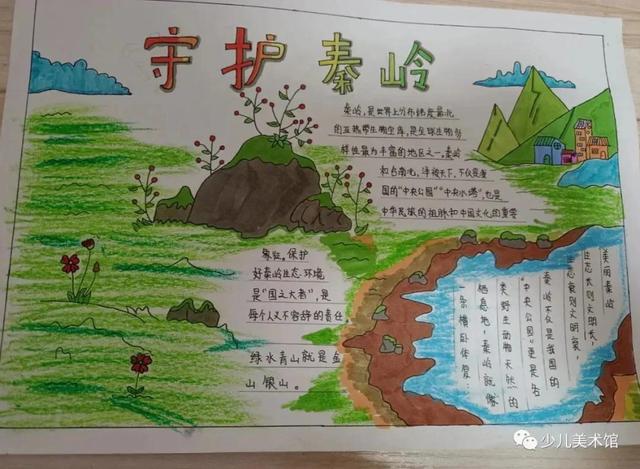 守护秦岭
秦岭，是世界上分布纬度最北
的亚热带生物宝库，是全球生物多
样性最为丰富的地区之一，秦岭
和合南北，泽被天下，不仅是我
国的“中央公园”“中央水塔”，也是
中华民族的祖脉和中国文化的重要
象征。保护
好秦岭生态环境
是“国之大者”，是
每个人义不容辞的责任
绿水青山就是金
山银山。
美丽秦岭
生态兴则文明兴，
生态衰则文明衰
秦岭不仅是我国的
“中央公园”更是各
类野生动物天然的
栖息地，秦岭就像
一条横卧体
少儿美术馆